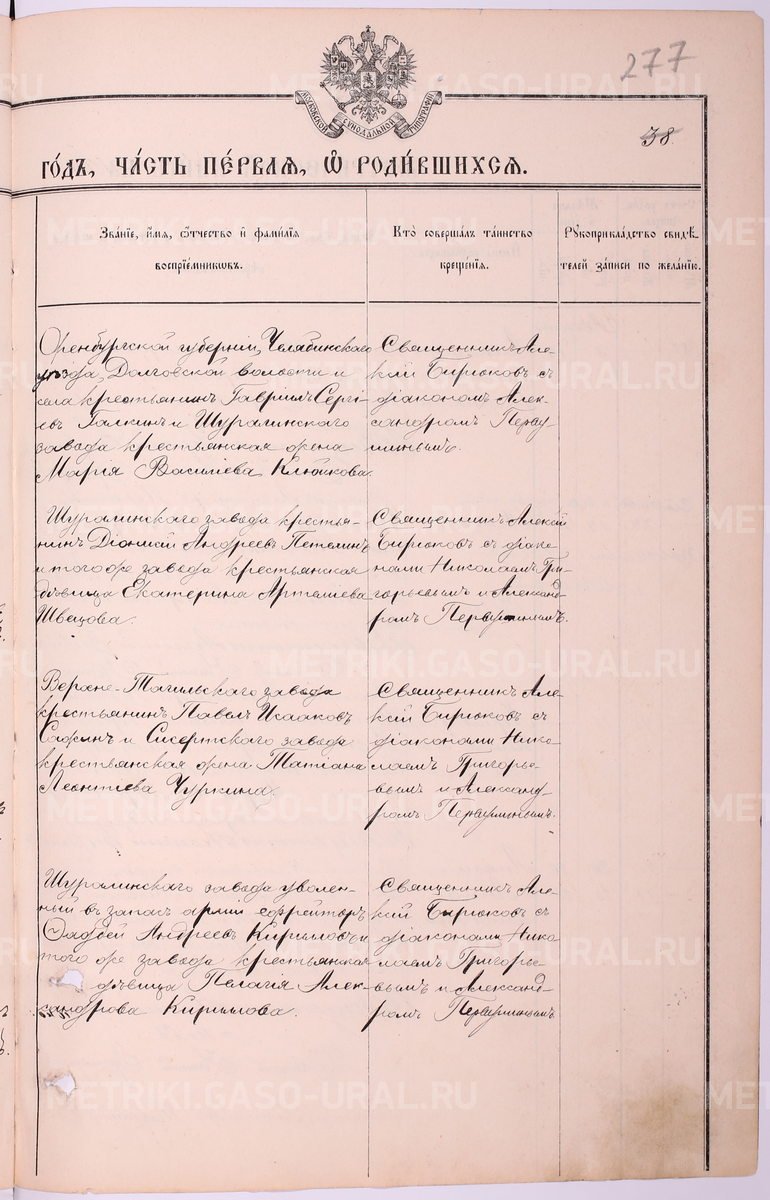 277
38
МОСКОВСКОЙ СѴНОДАЛЬНОЙ ТИПОГРАФІИ
ГО́ДЪ, ЧА́СТЬ ПЕ́РВАѦ, Ѡ҆ РОДИ́ВШИХСѦ.
Зва́нїе, и҆́мѧ, ѻ҆́тчество и҆ фами́лїѧ
воспрїе́мникѡвъ.
Кто̀ соверша́лъ та́инство
креще́нїѧ.
Рꙋкоприкла́дство свидѣ́
телей за́писи по жела́нїю.
Оренбургской губерніи, Челябинскаго
уѣзда, Долговской волости и
села крестьянинъ Гавріилъ Сергі-
евъ Галкинъ и Шуралинскаго
завода крестьянская жена
Марія Васильева Клюйкова.
Священникъ Але-
ксій Бирюковъ съ
діакономъ Алек-
сандромъ Перву-
шинымъ.
Шуралинскаго завода крестья-
нинъ Діонисій Андреевъ Петелинъ
и того же завода крестьянская
дѣвица Екатерина Артемьева
Швецова.
Священникъ Алексій
Бирюковъ съ діако-
нами Николаемъ Гри-
горьевымъ и Александ-
ромъ Первушинымъ.
Верхне-Тагильскаго завода
крестьянинъ Павелъ Исааковъ
Сафинъ и Сисертскаго завода
крестьянская жена Татіана
Леонтіева Чуркина.
Священникъ Але-
ксій Бирюковъ съ
діаконами Нико-
лаемъ Григорье-
вымъ и Александ-
ромъ Первушинымъ.
Шуралинскаго завода уволен-
ный въ запасъ арміи ефрейторъ
Ѳаддей Андреевъ Кириловъ и
того же завода крестьянская
дѣвица Пелагія Алек-
сандрова Кирилова.
Священникъ Але-
ксій Бирюковъ съ
діаконами Нико-
лаемъ Григорье-
вымъ и Александ-
ромъ Первушинымъ
METRIKI.GASO-URAL.RU